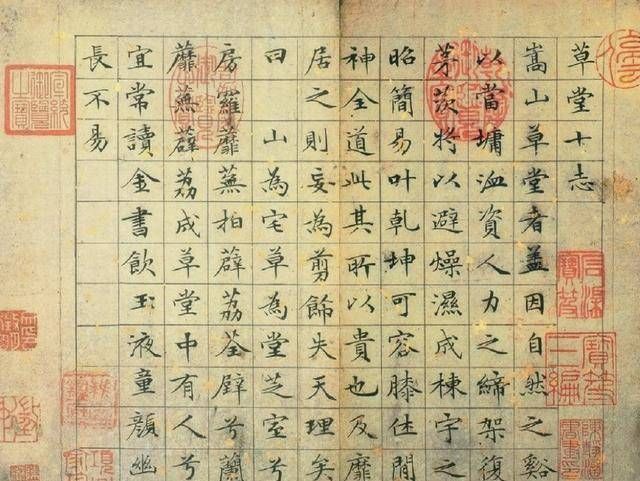 草堂十志
嵩山草堂者盖因自然之谿
以當墉洫資人力之締架復
茅茨将以避燥濕成棟宇之
昭簡易叶乾坤可容膝休閒
神全道此其所以貴也及靡
居之則妄為剪餙失天理矣
曰 山為宅草為堂芝室兮
房羅蘼蕪拍薜荔荃壁兮蘭
蘼蕪薜荔成草堂中有人兮
宜常讀金書飲玉液童顏幽
長不易
石渠寶笈
寶笈三編
宣統御覽之寶